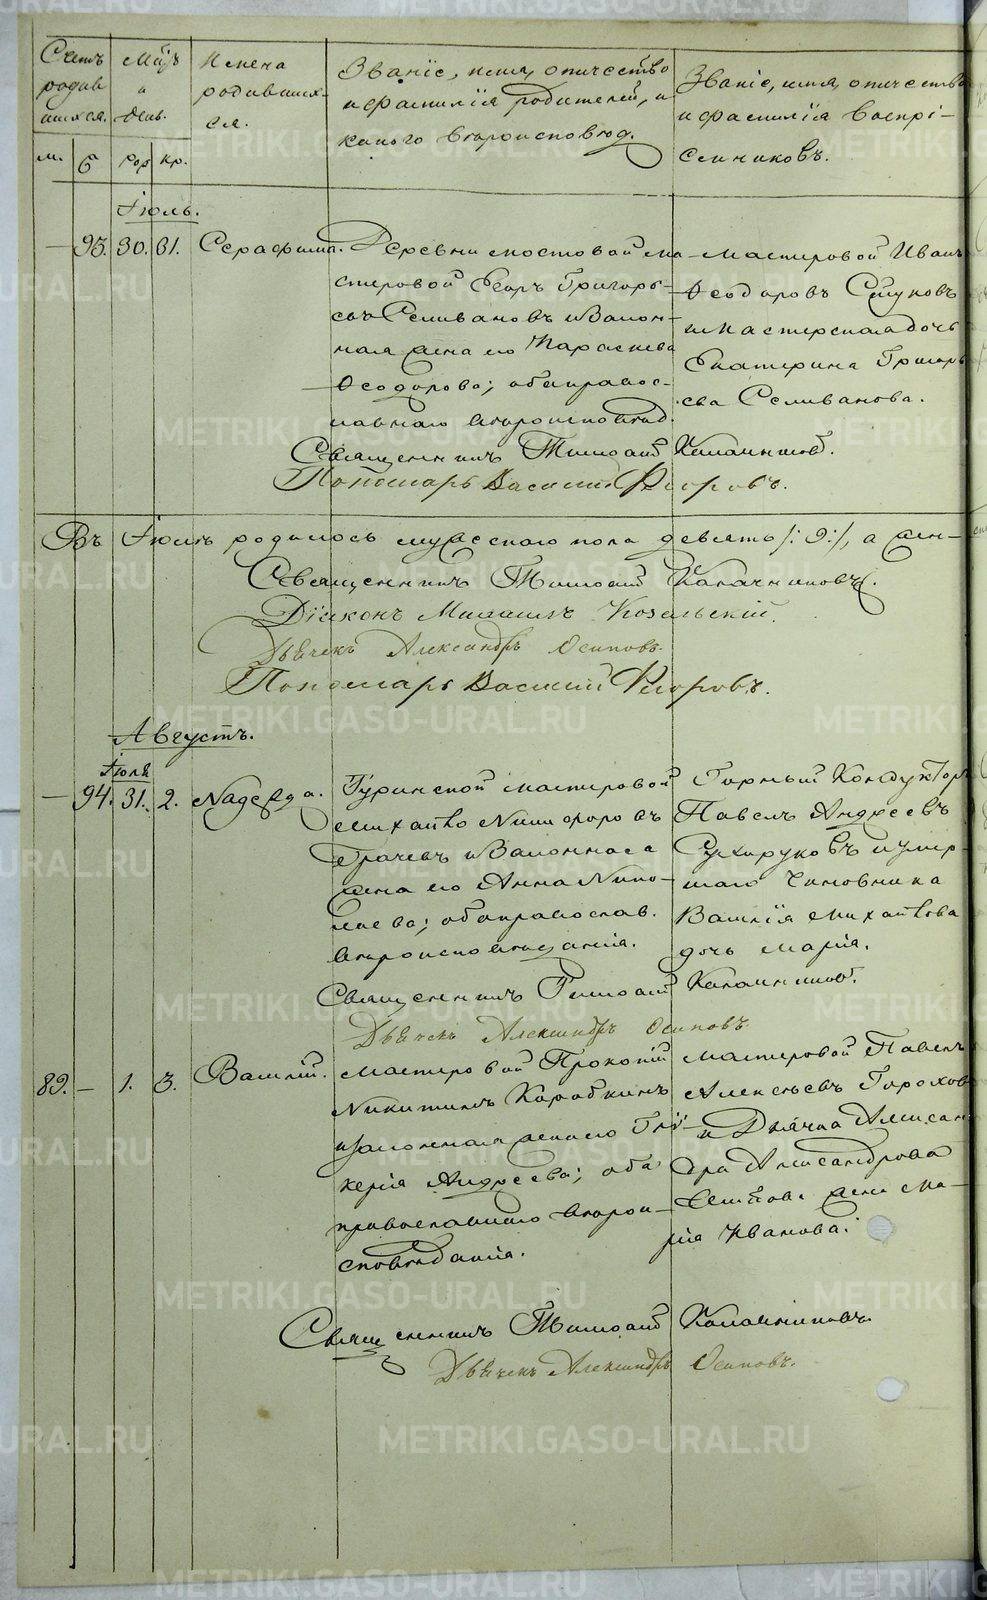 Счетъ родив шихся.
Мѣцъ и день.
Имена родивших- ся.
Званіе, имя, отчество и фамилія родителей, и какого вѣроисповѣд.
Званіе, имя, отчество и фамилія воспрі- емниковъ.
м. ж. рож кр.
Іюль.
— 93. 30. 31. Серафима.
Деревни Мостовой ма-
стеровой Егоръ Григорь-
евъ Селивановъ и закон-
ная жена его Параскева
Ѳеодорова; оба правос-
лавнаго вѣроисповѣд.
Мастеровой Иванъ
Ѳеодоровъ
и мастерская дочь
Екатерина Григорь
ева Селиванова.
Священникъ Тимоѳей Калачниковъ.
Пономарь Василій Ѳедоровъ.
Въ Іюлѣ родилось мужескаго пола девять /:9:/, а жен-
Священникъ Тимоѳей Калачниковъ.
Діаконъ Михаилъ Козельскій.
Дьячекъ Александръ Осиповъ.
Пономарь Василій Ѳедоровъ.
Августъ.
Іюля
— 94. 31. 2. Надежда.
мастеровой
Михайло Никифоровъ
Грачевъ и законная
жена его Анна Нико-
лаева; оба православ.
вѣроисповѣданія.
Горный Кондукторъ
Павелъ Андреевъ
Сухоруковъ и умер-
шаго Чиновника
Василія Михайлова
дочь Марія.
Священникъ Тимоѳей Калачниковъ.
Дьячекъ Александръ Осиповъ.
89. — 1. 3. Василій.
Мастеровой Прокопій
Никитинъ Коробкинъ
и законная жена его Гли-
керія Андреева; оба
православнаго вѣрои-
сповѣданія.
Мастеровой Павелъ
Алексѣевъ Гороховъ
и Дьячка Алексан
дра Александрова
Осипова жена Ма-
рія Иванова.
Священникъ Тимоѳей Калачниковъ.
Дьячекъ Александръ Осиповъ.
METRIKI.GASO-URAL.RU